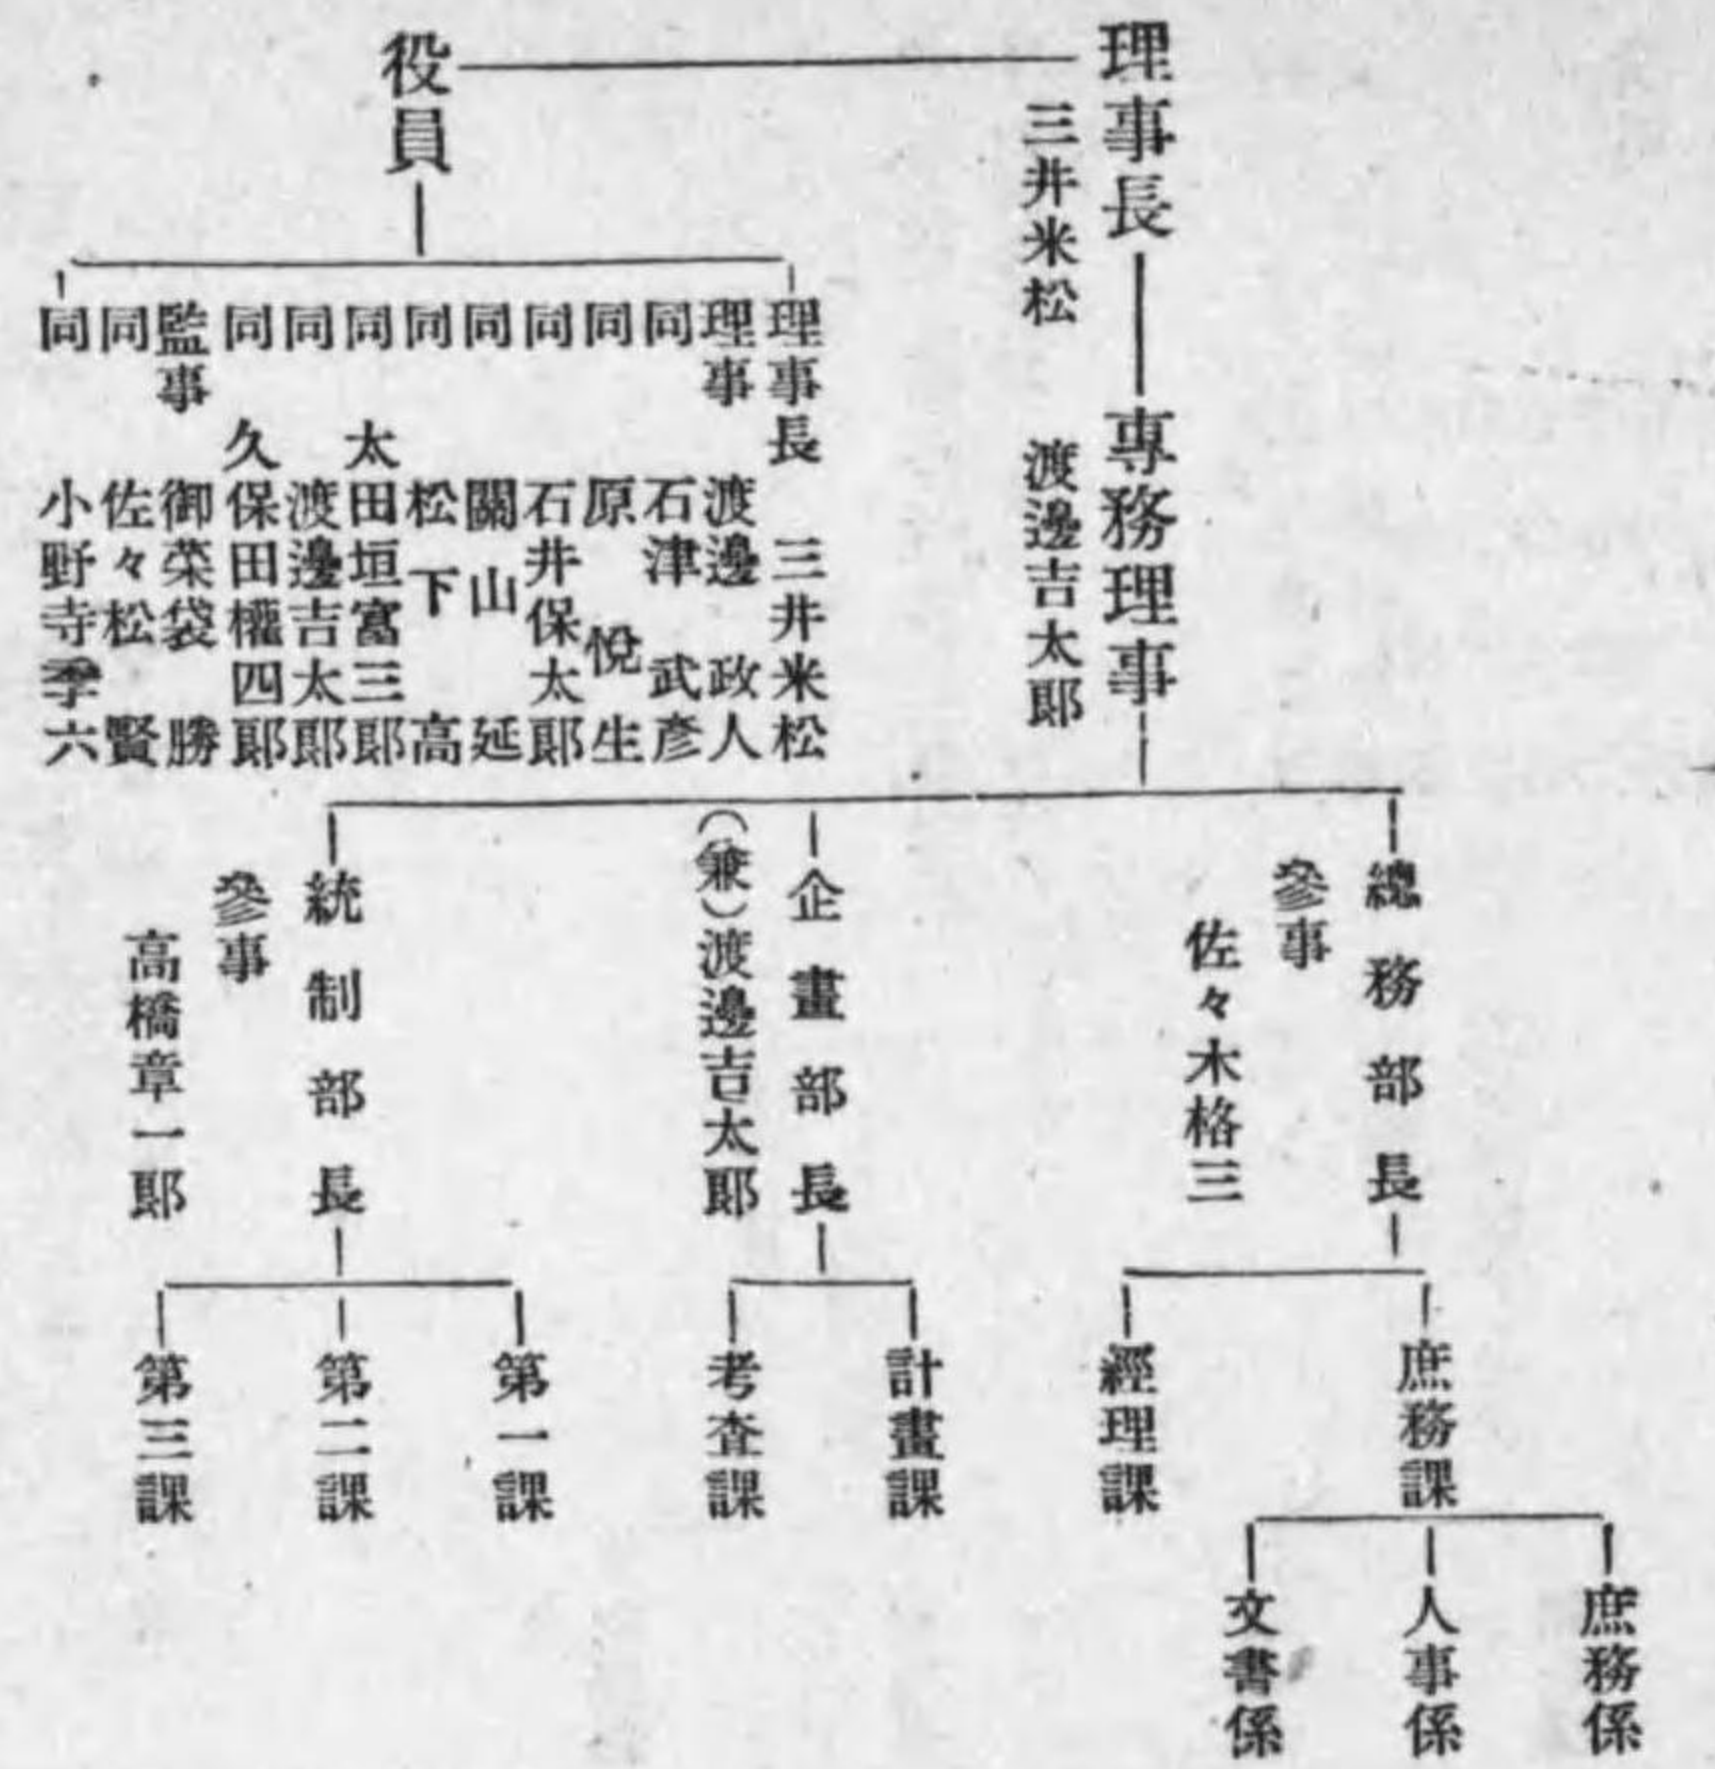 理事長
三井米松
專務理事
渡邊吉太郎
役員
理事長 三井米松
理事 渡邊政人
同 石津武彦
同 原悅生
同 石井保太郎
同 關山延
同 松下高
同 太田垣富三郎
同 渡邊吉太郎
同 久保田權四郎
監事 御菜袋勝
同 佐々松賢
同 小野寺季六
總務部長
參事
佐々木格三
庶務課
庶務係
人事係
文書係
經理課
企畫部長
(兼)渡邊吉太郎
計畫課
考査課
統制部長
參事
高橋章一郎
第一課
第二課
第三課